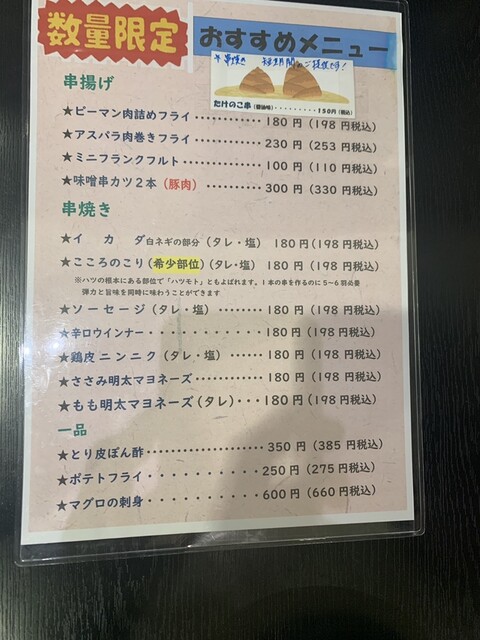 数量限定
おすすめメニュー
*串焼き 短期間のご提供です!
たけのこ串(醤油味)・・・・・・・・・150円(税込)
串揚げ
★ピーマン肉詰めフライ・・・・・・・・・・・・180円(198円税込)
★アスパラ肉巻きフライ・・・・・・・・・・・・230円(253円税込)
★ミニフランクフルト・・・・・・・・・・・・・100円(110円税込)
★味噌串カツ2本(豚肉)・・・・・・・・・・300円(330円税込)
串焼き
★イ カ ダ白ネギの部分(タレ・塩) 180円(198円税込)
★こころのこり(希少部位)(タレ・塩) 180円(198円税込)
※ハツの根本にある部位で「ハツモト」ともよばれます。1本の串を作るのに5~6羽必要
弾力と旨味を同時に味わうことができます
★ソーセージ(タレ・塩)・・・・・・・・180円(198円税込)
★辛口ウインナー・・・・・・・・・・・・180円(198円税込)
★鶏皮ニンニク(タレ・塩)・・・・・・180円(198円税込)
★ささみ明太マヨネーズ・・・・・・・・・・・・180円(198円税込)
★もも明太マヨネーズ(タレ)・・・180円(198円税込)
一品
★とり皮ぽん酢・・・・・・・・・・・・・・・・・・・・350円(385円税込)
★ポテトフライ・・・・・・・・・・・250円(275円税込)
★マグロの刺身・・・・・・・・・・・600円(660円税込)